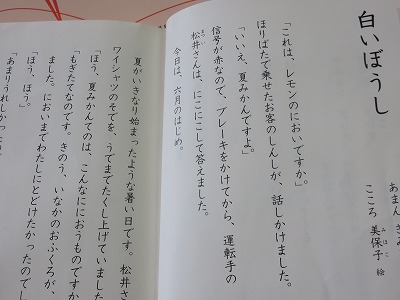 白いぼうし
あまん きみ
こころ 美保子 絵
みほこ
「これは、レモンのにおいですか。」
ほりばたで乗せたお客のしんしが、話しかけました。
「いいえ、夏みかんですよ。」
信号が赤なので、ブレーキをかけてから、運転手の
松井さんは、にこにこして答えました。
まつい
今日は、六月のはじめ。
夏がいきなり始まったような暑い日です。松井
ワイシャツのそでを、うでまでたくし上げていまし
「ほう、夏みかんてのは、こんなににおうものですか
「もぎたてなのです。きのう、いなかのおふくろが、
ました。においまでわたしにとどけたかったのでし
「ほう、ほう。」
「あまりうれしかった